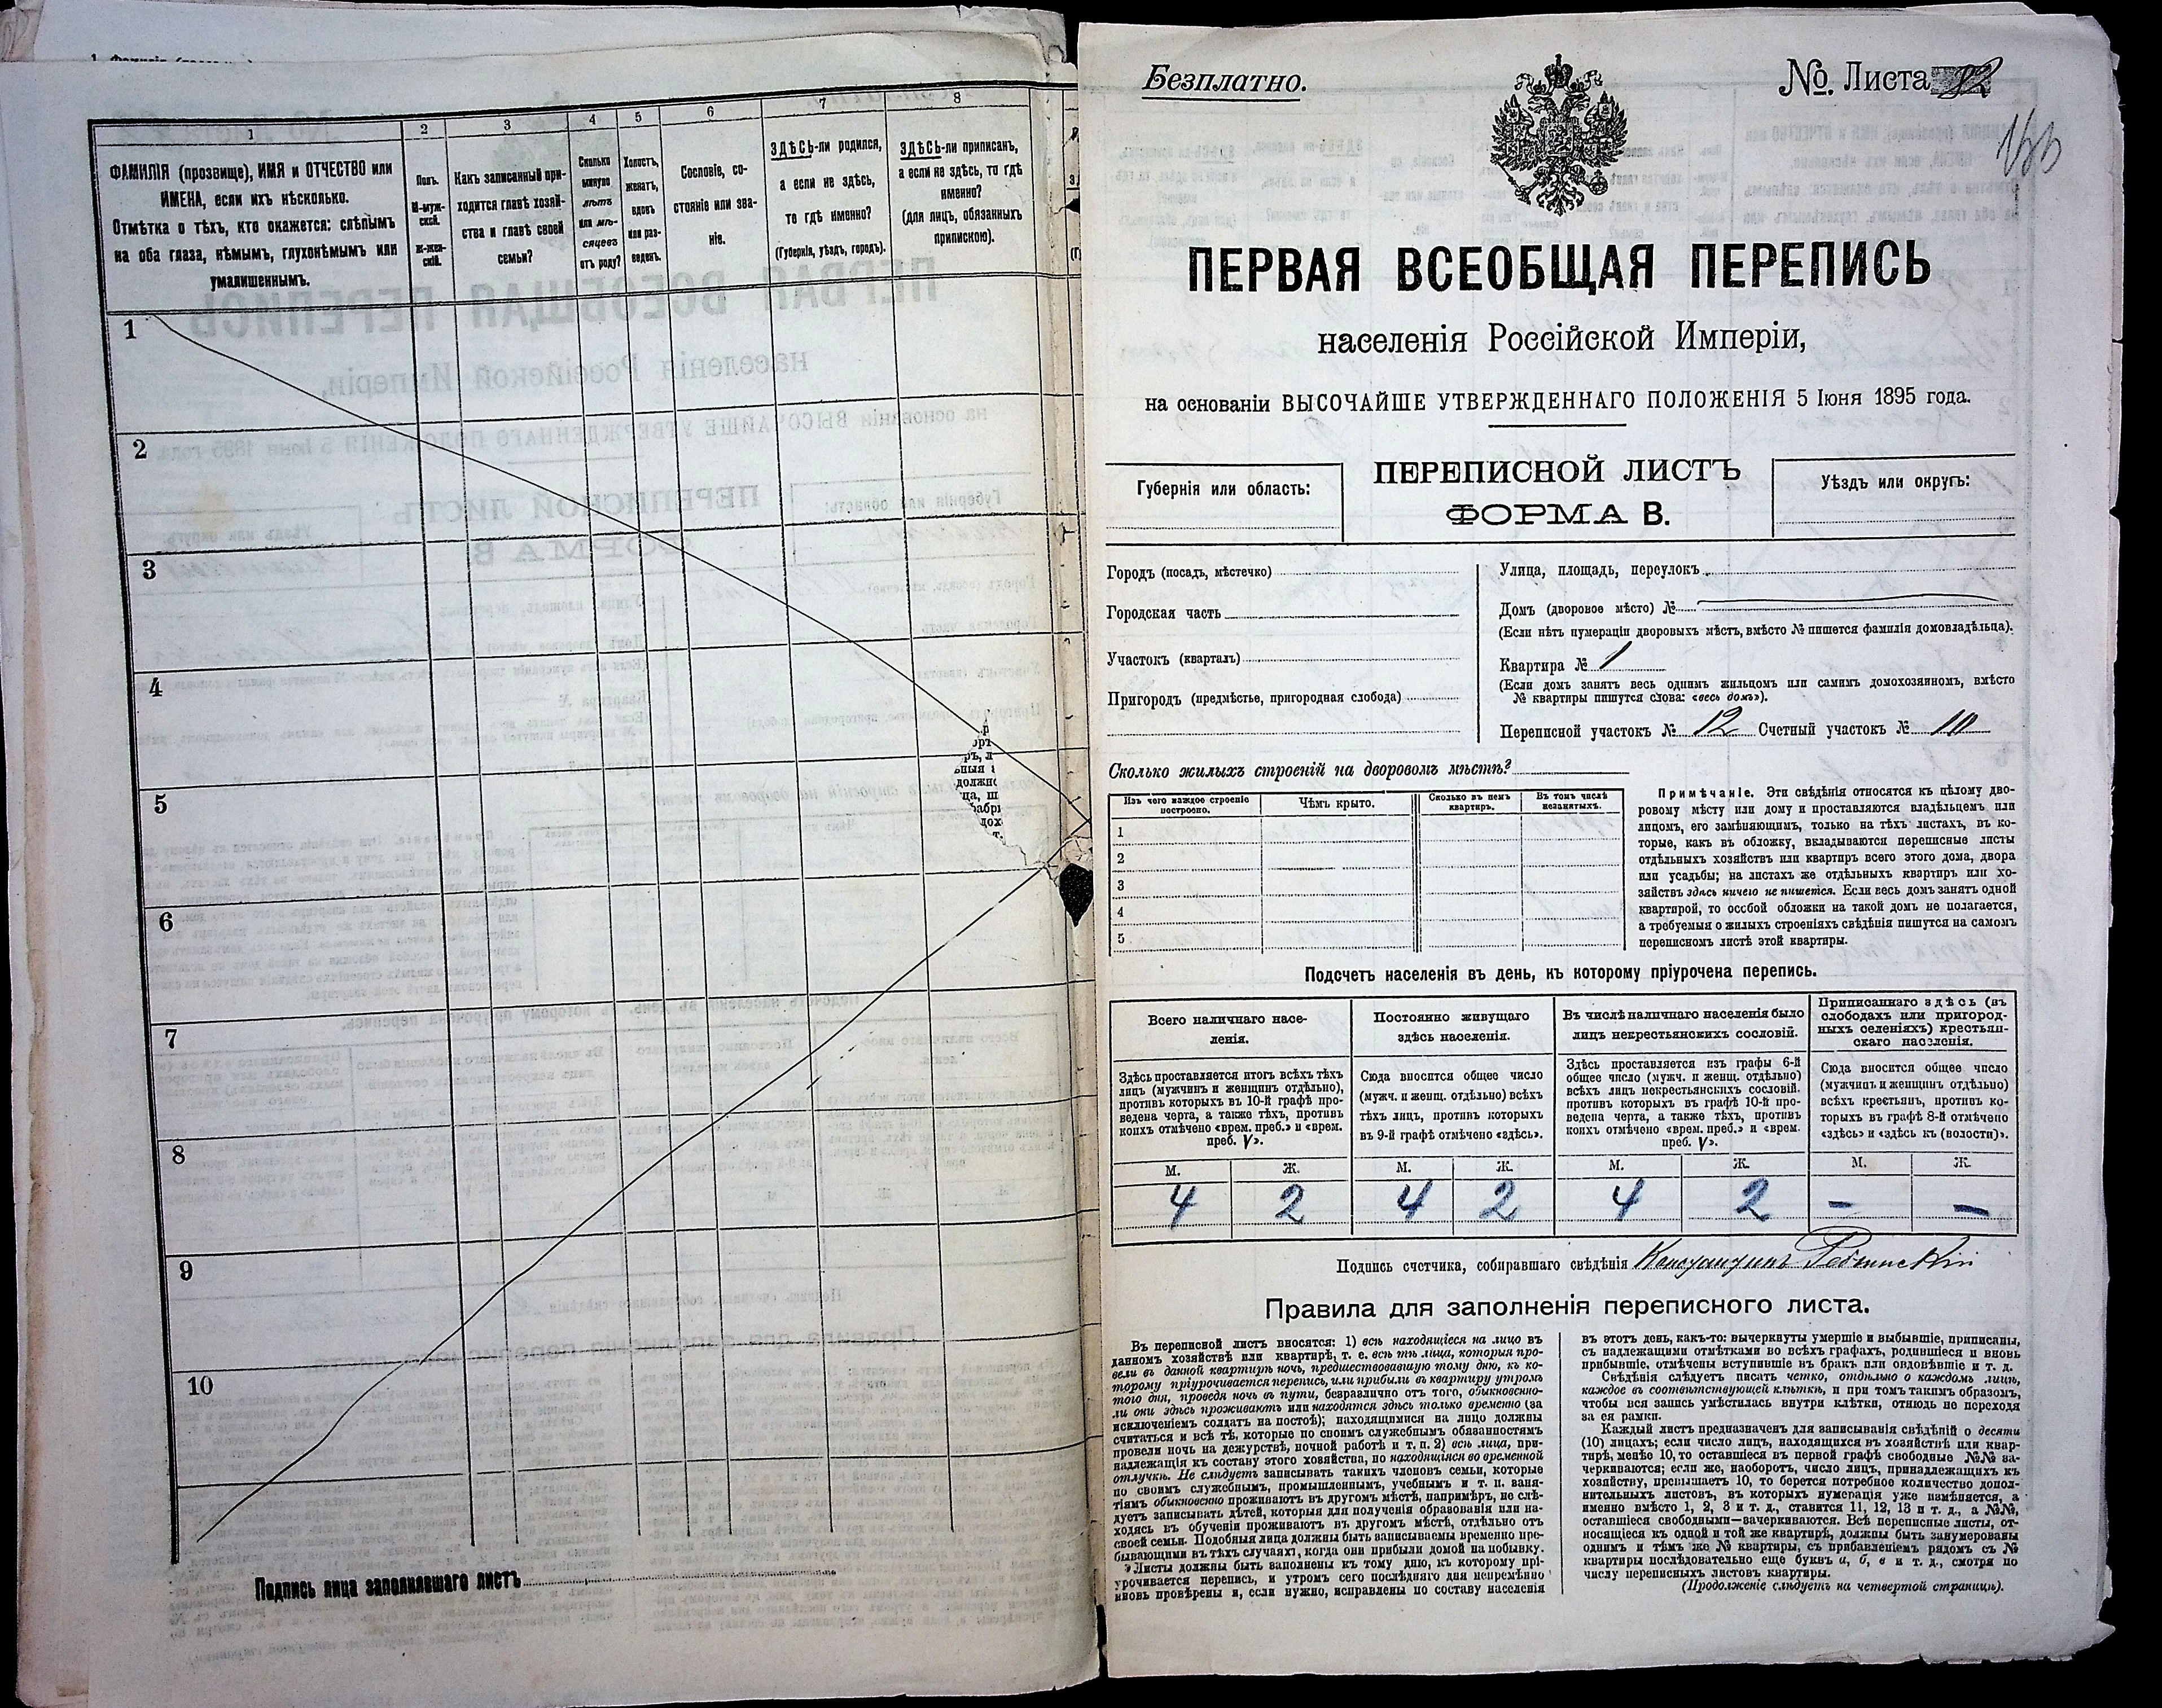 1
2
3
4
5
6
7
8
ФАМИЛІЯ (прозвище), ИМЯ и ОТЧЕСТВО или
ИМЕНА, если ихъ нѣсколько.
Отмѣтка о тѣхъ, кто окажется: слѣпымъ
на оба глаза, нѣмымъ, глухонѣмымъ или
умалишеннымъ.
Полъ.
М-муж-
ской.
Ж-жен-
скій.
Какъ записанный при-
ходится главѣ хозяй-
ства и главѣ своей
семьи?
Сколько
минуло
лѣтъ
или мѣ-
сяцевъ
отъ роду?
Холостъ,
женатъ,
вдовъ
или раз-
веденъ.
Сословіе, со-
стояніе или зва-
ніе.
ЗДѢСЬ-ли родился,
а если не здѣсь,
то гдѣ именно?
(Губернія, уѣздъ, городъ).
ЗДѢСЬ-ли приписанъ,
а если не здѣсь, то гдѣ
именно?
(для лицъ, обязанныхъ
припискою).
1
2
3
4
5
6
7
8
9
10
Подпись лица заполнявшаго листъ
Безплатно.
№. Листа 82
ПЕРВАЯ ВСЕОБЩАЯ ПЕРЕПИСЬ
населенія Россійской Имперіи,
на основаніи ВЫСОЧАЙШЕ УТВЕРЖДЕННАГО ПОЛОЖЕНІЯ 5 Іюня 1895 года.
Губернія или область:
ПЕРЕПИСНОЙ ЛИСТЪ
ФОРМА В.
Уѣздъ или округъ:
Городъ (посадъ, мѣстечко)
Городская часть
Участокъ (кварталъ)
Пригородъ (предмѣстье, пригородная слобода)
Улица, площадь, переулокъ
Домъ (дворовое мѣсто) №
(Если нѣтъ нумераціи дворовыхъ мѣстъ, вмѣсто № пишется фамилія домовладѣльца).
Квартира № 1
(Если домъ занятъ весь однимъ жильцомъ или самимъ домохозяиномъ, вмѣсто
№ квартиры пишутся слова: «весь домъ»).
Переписной участокъ № 12 Счетный участокъ № 10
Сколько жилыхъ строеній на дворовомъ мѣстѣ?
Изъ чего каждое строеніе
построено.
Чѣмъ крыто.
Сколько въ немъ
квартиръ.
Въ томъ числѣ
незанятыхъ.
1
2
3
4
5
Примѣчаніе. Эти свѣдѣнія относятся къ цѣлому дво-
ровому мѣсту или дому и проставляются владѣльцемъ или
лицомъ, его замѣняющимъ, только на тѣхъ листахъ, въ ко-
торые, какъ въ обложку, вкладываются переписные листы
отдѣльныхъ хозяйствъ или квартиръ всего этого дома, двора
или усадьбы; на листахъ же отдѣльныхъ квартиръ или хо-
зяйствъ здѣсь ничего не пишется. Если весь домъ занятъ одной
квартирой, то особой обложки на такой домъ не полагается,
а требуемыя о жилыхъ строеніяхъ свѣдѣнія пишутся на самомъ
переписномъ листѣ этой квартиры.
Подсчетъ населенія въ день, къ которому пріурочена перепись.
Всего наличнаго насе-
ленія.
Постоянно живущаго
здѣсь населенія.
Въ числѣ наличнаго населенія было
лицъ некрестьянскихъ сословій.
Приписаннаго здѣсь (въ
слободахъ или пригород-
ныхъ селеніяхъ) крестьян-
скаго населенія.
Здѣсь проставляется итогъ всѣхъ тѣхъ
лицъ (мужчинъ и женщинъ отдѣльно),
противъ которыхъ въ 10-й графѣ про-
ведена черта, а также тѣхъ, противъ
коихъ отмѣчено «врем. преб.» и «врем.
преб. V».
Сюда вносится общее число
(мужч. и женщ. отдѣльно) всѣхъ
тѣхъ лицъ, противъ которыхъ
въ 9-й графѣ отмѣчено «здѣсь».
Здѣсь проставляется изъ графы 6-й
общее число (мужч. и женщ. отдѣльно)
всѣхъ лицъ некрестьянскихъ сословій.
противъ которыхъ въ графѣ 10-й про-
ведена черта, а также тѣхъ, противъ
коихъ отмѣчено «врем. преб.» и «врем.
преб. V».
Сюда вносится общее число
(мужчинъ и женщинъ отдѣльно)
всѣхъ крестьянъ, противъ ко-
торыхъ въ графѣ 8-й отмѣчено
«здѣсь» и «здѣсь къ (волости)».
М. Ж. М. Ж. М. Ж. М. Ж.
4 2 4 2 4 2 - -
Подпись счетчика, собиравшаго свѣдѣнія Константинъ
Правила для заполненія переписного листа.
Въ переписной листъ вносятся: 1) всѣ находящіеся на лицо въ
данномъ хозяйствѣ или квартирѣ, т. е. всѣ тѣ лица, которыя про-
вели въ данной квартирѣ ночь, предшествовавшую тому дню, къ ко-
торому пріурочивается перепись, или прибыли въ квартиру утромъ
того дня, проведя ночь въ пути, безразлично отъ того, обыкновенно-
ли они здѣсь проживаютъ или находятся здѣсь только временно (за
исключеніемъ солдатъ на постоѣ); находящимися на лицо должны
считаться и всѣ тѣ, которые по своимъ служебнымъ обязанностямъ
провели ночь на дежурствѣ, ночной работѣ и т. п. 2) всѣ лица, при-
надлежащія къ составу этого хозяйства, но находящіяся во временной
отлучкѣ. Не слѣдуетъ записывать такихъ членовъ семьи, которые
по своимъ служебнымъ, промышленнымъ, учебнымъ и т. п. заня-
тіямъ обыкновенно проживаютъ въ другомъ мѣстѣ, напримѣръ, не слѣ-
дуетъ записывать дѣтей, которыя для полученія образованія или на-
ходясь въ обученіи проживаютъ въ другомъ мѣстѣ, отдѣльно отъ
своей семьи. Подобныя лица должны быть записываемы временно пре-
бывающими въ тѣхъ случаяхъ, когда они прибыли домой на побывку.
Листы должны быть заполнены къ тому дню, къ которому прі-
урочивается перепись, и утромъ сего послѣдняго дня непремѣнно
вновь провѣрены и, если нужно, исправлены по составу населенія
въ этотъ день, какъ-то: вычеркнуты умершіе и выбывшіе, приписаны,
съ надлежащими отмѣтками во всѣхъ графахъ, родившіеся и вновь
прибывшіе, отмѣчены вступившіе въ бракъ или овдовѣвшіе и т. д.
Свѣдѣнія слѣдуетъ писать четко, отдѣльно о каждомъ лицѣ,
каждое въ соотвѣтствующей клѣткѣ, и при томъ такимъ образомъ,
чтобы вся запись умѣстилась внутри клѣтки, отнюдь не переходя
за ея рамки.
Каждый листъ предназначенъ для записыванія свѣдѣній о десяти
(10) лицахъ; если число лицъ, находящихся въ хозяйствѣ или квар-
тирѣ, менѣе 10, то оставшіеся въ первой графѣ свободные №№ за-
черкиваются; если же, наоборотъ, число лицъ, принадлежащихъ къ
хозяйству, превышаетъ 10, то берется потребное количество допол-
нительныхъ листовъ, въ которыхъ нумерація уже измѣняется, а
именно вмѣсто 1, 2, 3 и т. д., ставится 11, 12, 13 и т. д., а №№,
оставшіеся свободными—зачеркиваются. Всѣ переписные листы, от-
носящіеся къ одной и той же квартирѣ, должны быть занумерованы
однимъ и тѣмъ же № квартиры, съ прибавленіемъ рядомъ съ №
квартиры послѣдовательно еще буквъ а, б, в и т. д., смотря по
числу переписныхъ листовъ квартиры.
(Продолженіе слѣдуетъ на четвертой страницѣ).